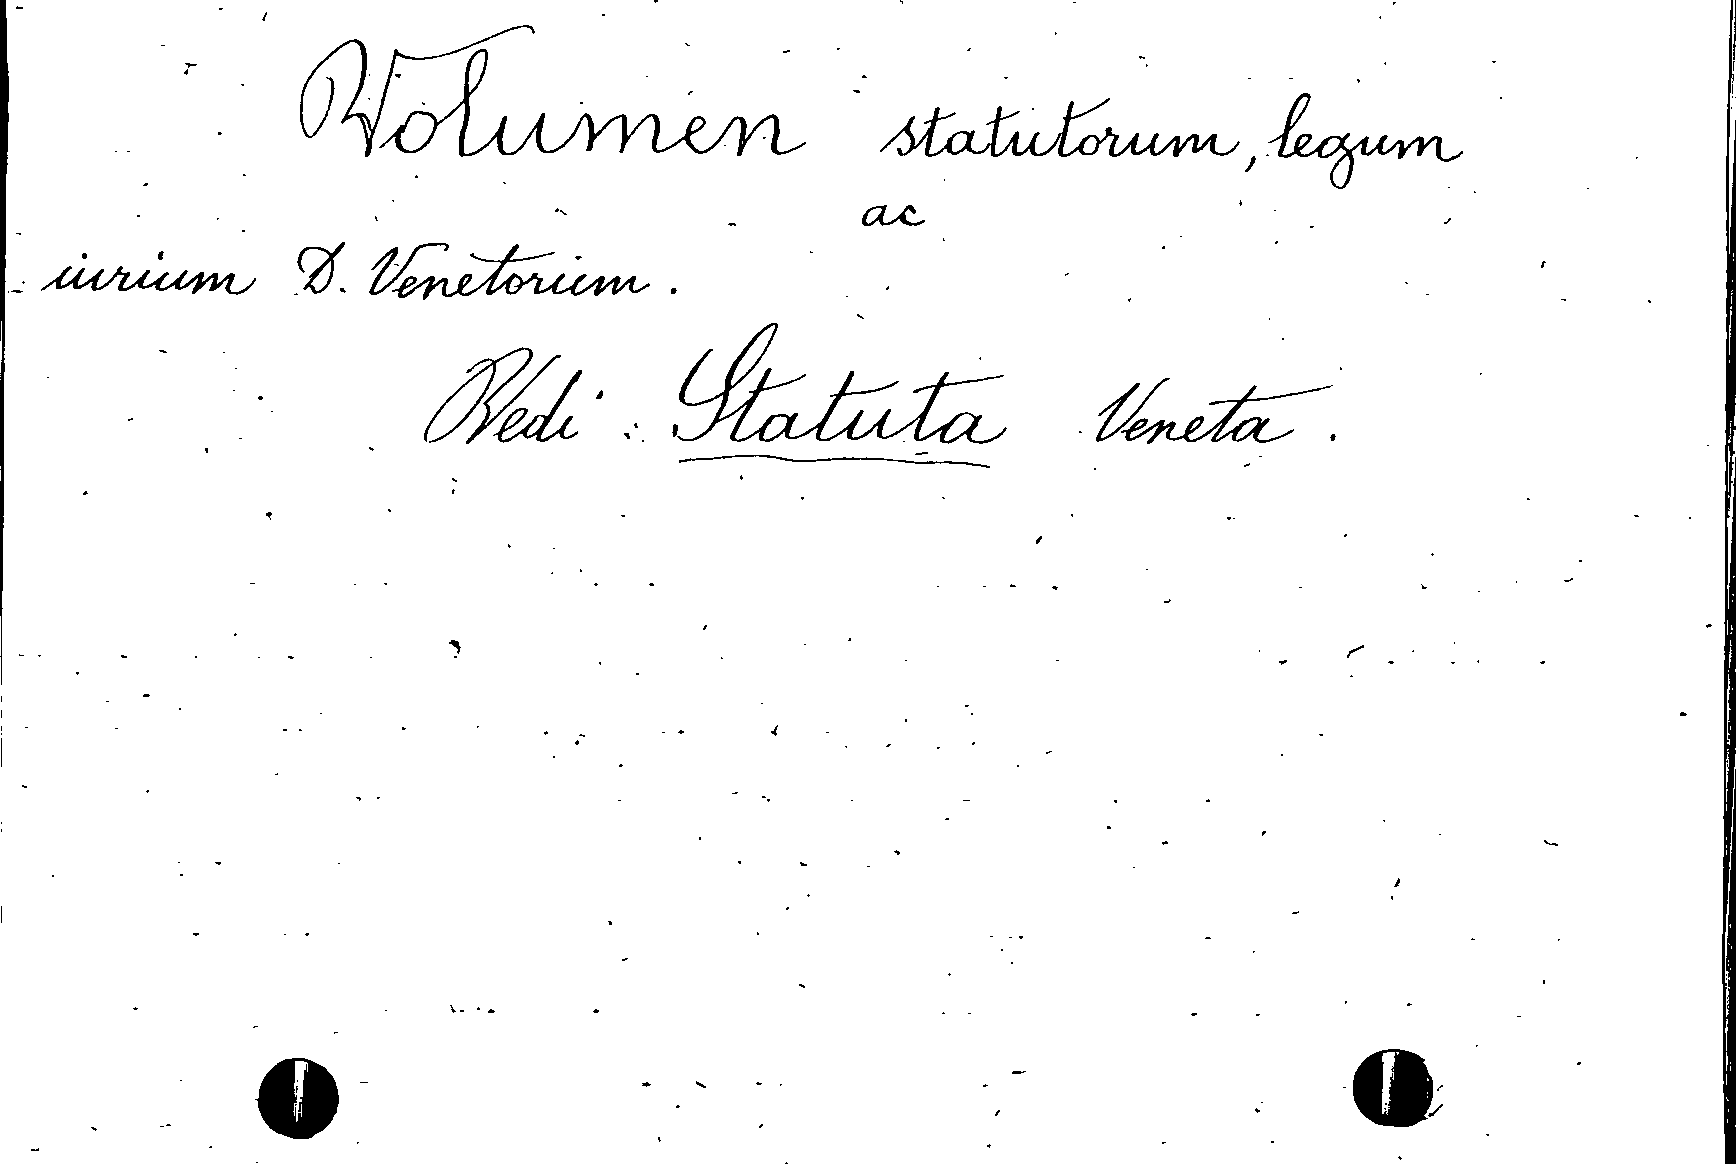 Volumen statutorum, legum
ac
iurium D. Venetorum.
Vedi: Statuta Veneta.